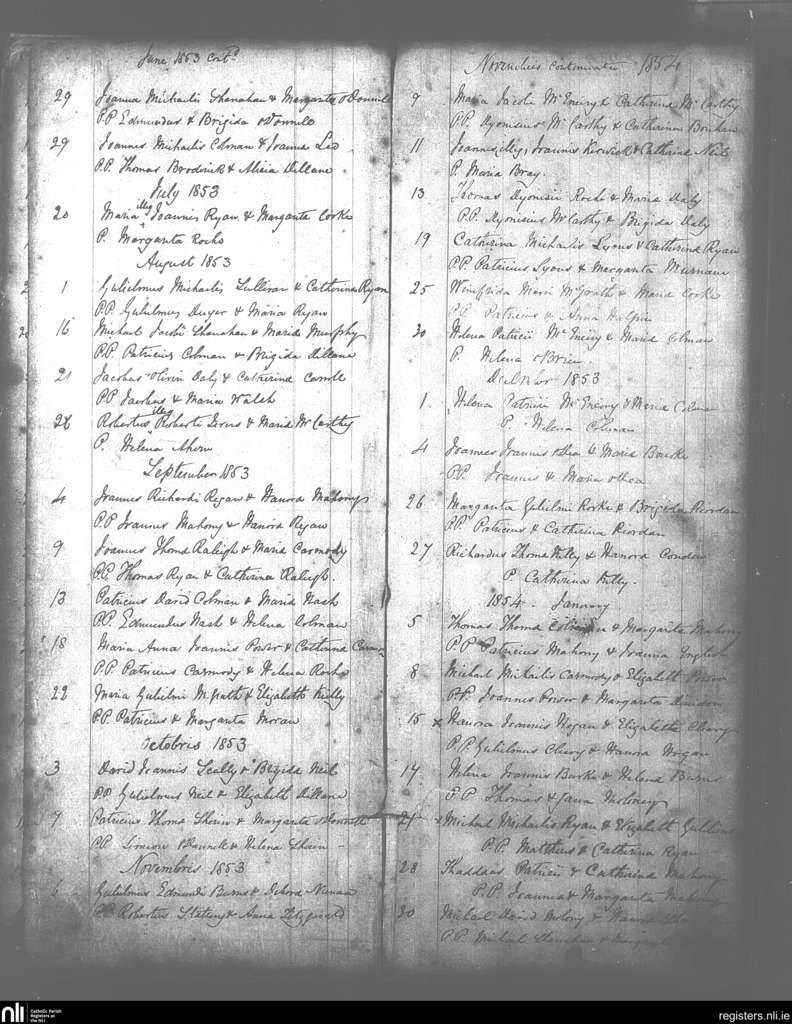 June 1853 Cont.d
29 Joanna Michaelis Shanahan & Margarita O'Donnell
P.P. Edmundus & Brigida O'Donnell
29 Joannes Michaelis Colman & Joanna Leo
P.P. Thomas Brodrick & Alicia Dillane
July 1853
20 Maria illeg Joannis Ryan & Margarita Cooke
P. Margarita Roche
August 1853
1 Gulielmus Michaelis Sullivan & Catherina Ryan
P.P. Gulielmus Dwyer & Maria Ryan
16 Michael Jacobi Shanahan & Maria Murphy
P.P. Patricius Colman & Brigida Dillane
21 Jacobus Oliveri Daly & Catherina Carroll
P.P. Jacobus & Maria Walsh
26 Robertus illeg Roberti & Maria McCarthy
P. Helena Ahern
September 1853
4 Joannes Richardi Regan & Hanora Mahony
P.P. Joannes Mahony & Hanora Regan
9 Joannes Thoma Raleigh & Maria Carmody
P.P. Thomas Ryan & Catherina Raleigh.
13 Patricius David Colman & Maria Nash
P.P. Edmundus Nash & Helena Colman
18 Maria Anna Joannis Power & Catherina
P.P. Patricius Carmody & Helena Roche
22 Maria Gulielmi McGrath & Elizabeth Kelly
P.P. Patricius & Margarita Moran
Octobris 1853
3 David Joannis Scally & Brigida Neil
P.P. Gulielmus Neil & Elizabeth Dillane
7 Patricius Thoma Sheein & Margarita O'Donnell
P.P. Simeon O'Donnell & Helena Sheein
Novembris 1853
6 Gulielmus Edmundi Burns & Nunan
P.P. Robertus & Anna Fitzgerald
Novembris continuatio 1854
9 Maria Jacobi McEneiry & Catherina McCarthy
P.P. Dyonisius McCarthy & Catherina
11 Joannes illeg, Joannis Kerwick & Catherina Neil
P. Maria Bray.
13 Thomas Dyonisii Roche & Maria Daly
P.P. Dyonisius McCarthy & Brigida Daly
19 Catherina Michaelis Lyons & Catherina Ryan
P.P. Patricius Lyons & Margarita Murnane
25 Winefrida McGrath & Maria Cooke
P.P. Patricius & Anna Halpin
30 Helena Patricii McEneiry & Maria Colman
P. Helena O'Brien
December 1853
1. Helena Patricii McEneiry & Maria Colman
P. Helena Colman
4 Joannes Joannis O'Shea & Maria Bourke
P.P. Joannes & Maria O'Shea
26 Margarita Gulielmi Roche & Brigida Riordan
P.P. Patricius & Catherina Riordan
27 Richardus Thoma Kelly & Hanora Condon
P. Catherina Kelly.
1854 - January
5 Thomas Thoma & Margarita Mahony
P.P. Patricius Mahony & Joanna English
8 Michael Michaelis Carmody & Elizabeth Power
P.P. Joannes Power & Margarita
15 x Hanora Joannis Hogan & Elizabetha Cleary
P.P. Gulielmus Cleary & Hanora Hogan
17 Helena Joannis Burke & Helena Burns
P.P. Thomas & Jana Moloney
21 x Michael Michaelis Ryan & Elizabeth
P.P. Mattheus & Catherina Ryan
28 Thaddaus Patricii & Catherina Mahony
P.P. Joannes & Margarita Mahony
30 Michael David Molony & Hanora
P.P. Michael Shanahan &
nli
Catholic Parish
Registers at
the NLI
registers.nli.ie